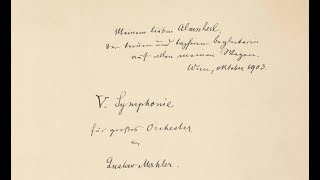 Meinem lieben Almscherl,
der treuen und tapferen Begleiterin
auf allen meinen Wegen.
Wien, Oktober 1903
V. Symphonie
für großes Orchester
von
Gustav Mahler.